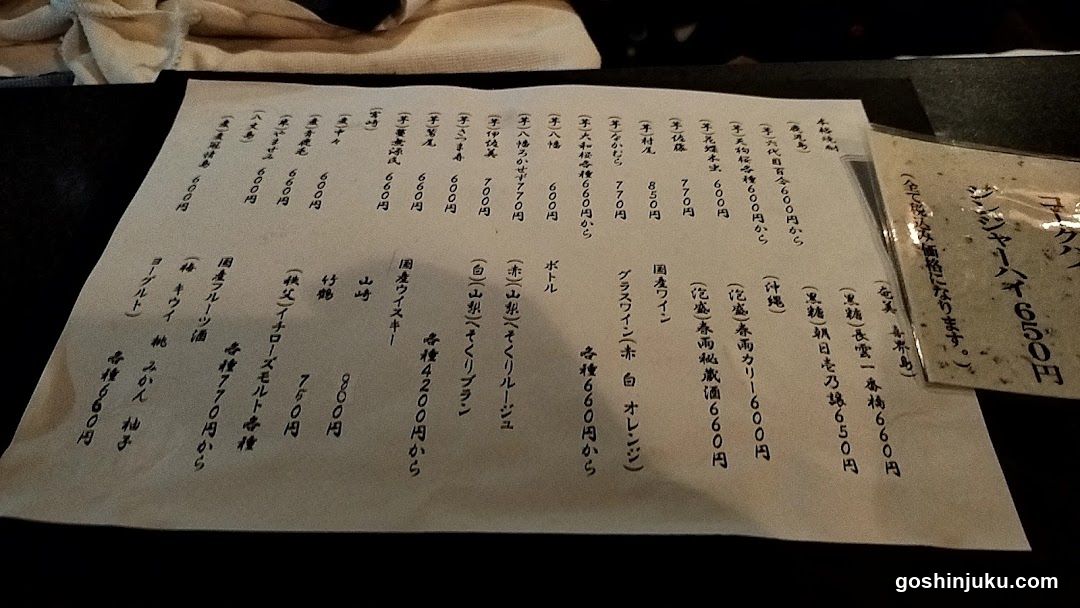 本格焼酎
(鹿児島)
(芋)六代目百合600円から
(芋)天狗桜各種600円から
(芋)花蝶木虫 600円
(芋)佐藤 770円
(芋)村尾 850円
(芋)なかむら 770円
(芋)大和桜各種660円から
(芋)八幡 600円
(芋)八幡ろかせず770円
(芋)伊佐美 700円
(芋)さつま寿 600円
(芋)鷲尾 660円
(芋)蛮酒源氏 660円
(宮崎)
(麦)中々 600円
(麦)青鹿毛 660円
(芋)たちばな 660円
(八丈島)
(麦)情島 600円
(奄美 喜界島)
(黒糖)長雲一番橋660円
(黒糖)朝日壱乃醸650円
(沖縄)
(泡盛)春雨カリー600円
(泡盛)春雨秘蔵酒660円
国産ワイン
グラスワイン(赤 白 オレンジ)
各種660円から
ボトル
(赤)(山梨)へそくりルージュ
(白)(山梨)へそくりブラン
各種4200円から
国産ウイスキー
山崎 800円
竹鶴 750円
(秩父)イチローズモルト各種
各種770円から
国産フルーツ酒
(梅 キウイ 桃 みかん 柚子
ヨーグルト) 各種660円
コークハ
ジンジャーハイ650円
(全て税込み価格になります。)
goshinjuku.com